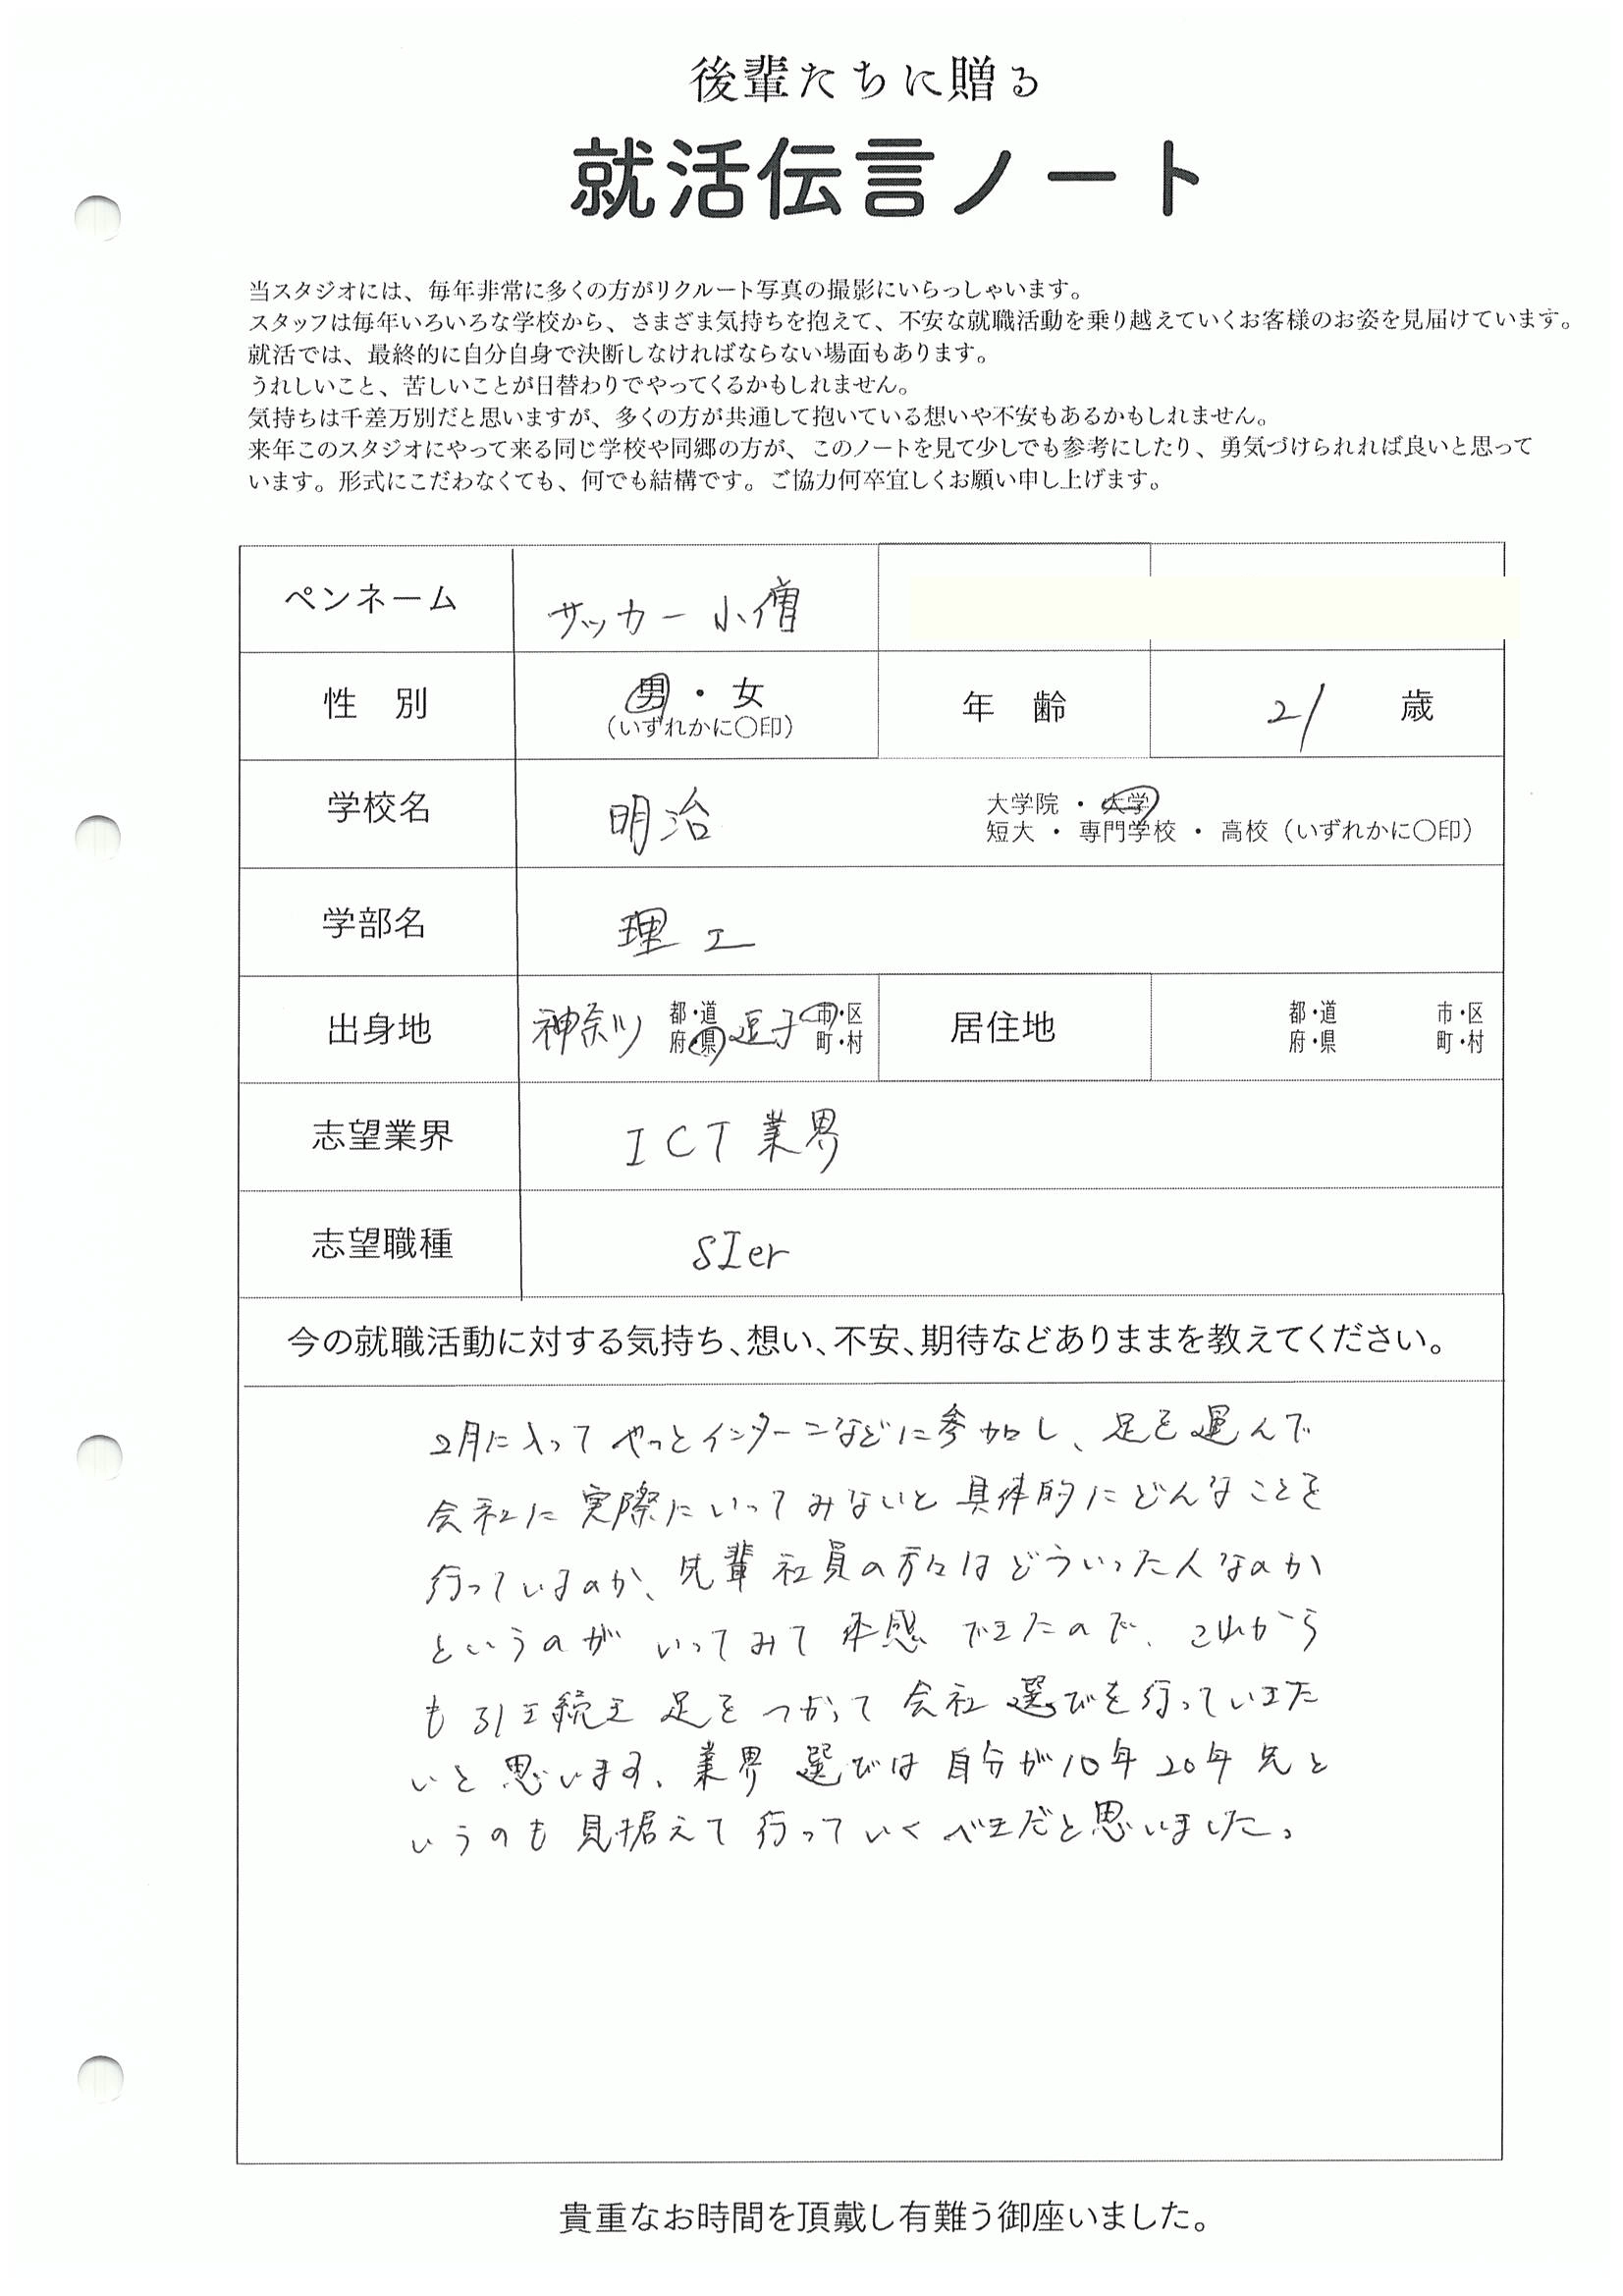 後輩たちに贈る
就活伝言ノート
当スタジオには、毎年非常に多くの方がリクルート写真の撮影にいらっしゃいます。
スタッフは毎年いろいろな学校から、さまざま気持ちを抱えて、不安な就職活動を乗り越えていくお客様のお姿を見届けています。
就活では、最終的に自分自身で決断しなければならない場面もあります。
うれしいこと、苦しいことが日替わりでやってくるかもしれません。
気持ちは千差万別だと思いますが、多くの方が共通して抱いている想いや不安もあるかもしれません。
来年このスタジオにやって来る同じ学校や同郷の方が、このノートを見て少しでも参考にしたり、勇気づけられれば良いと思って
います。形式にこだわなくても、何でも結構です。ご協力何卒宜しくお願い申し上げます。
ペンネーム サッカー小僧
性 別 男・女 (いずれかに〇印) 年 齢 21 歳
学校名 明治 大学院・大学
短大・専門学校・高校（いずれかに〇印）
学部名 理工
出身地 神奈川 都・道府・県 逗子 市・区町・村 居住地 都・道府・県 市・区町・村
志望業界 ICT業界
志望職種 SIer
今の就職活動に対する気持ち、想い、不安、期待などありままを教えてください。
2月に入ってやっとインターンなどに参加し、足を運んで
会社に実際にいってみないと具体的にどんなことを
行っているのか、先輩社員の方々はどういった人なのか
というのがいってみて体感できたので、これから
も引き続き足をつかって会社選びを行っていきた
いと思います。業界選びは自分が10年20年先と
いうのも見据えて行っていくべきだと思いました。
貴重なお時間を頂戴し有難う御座いました。